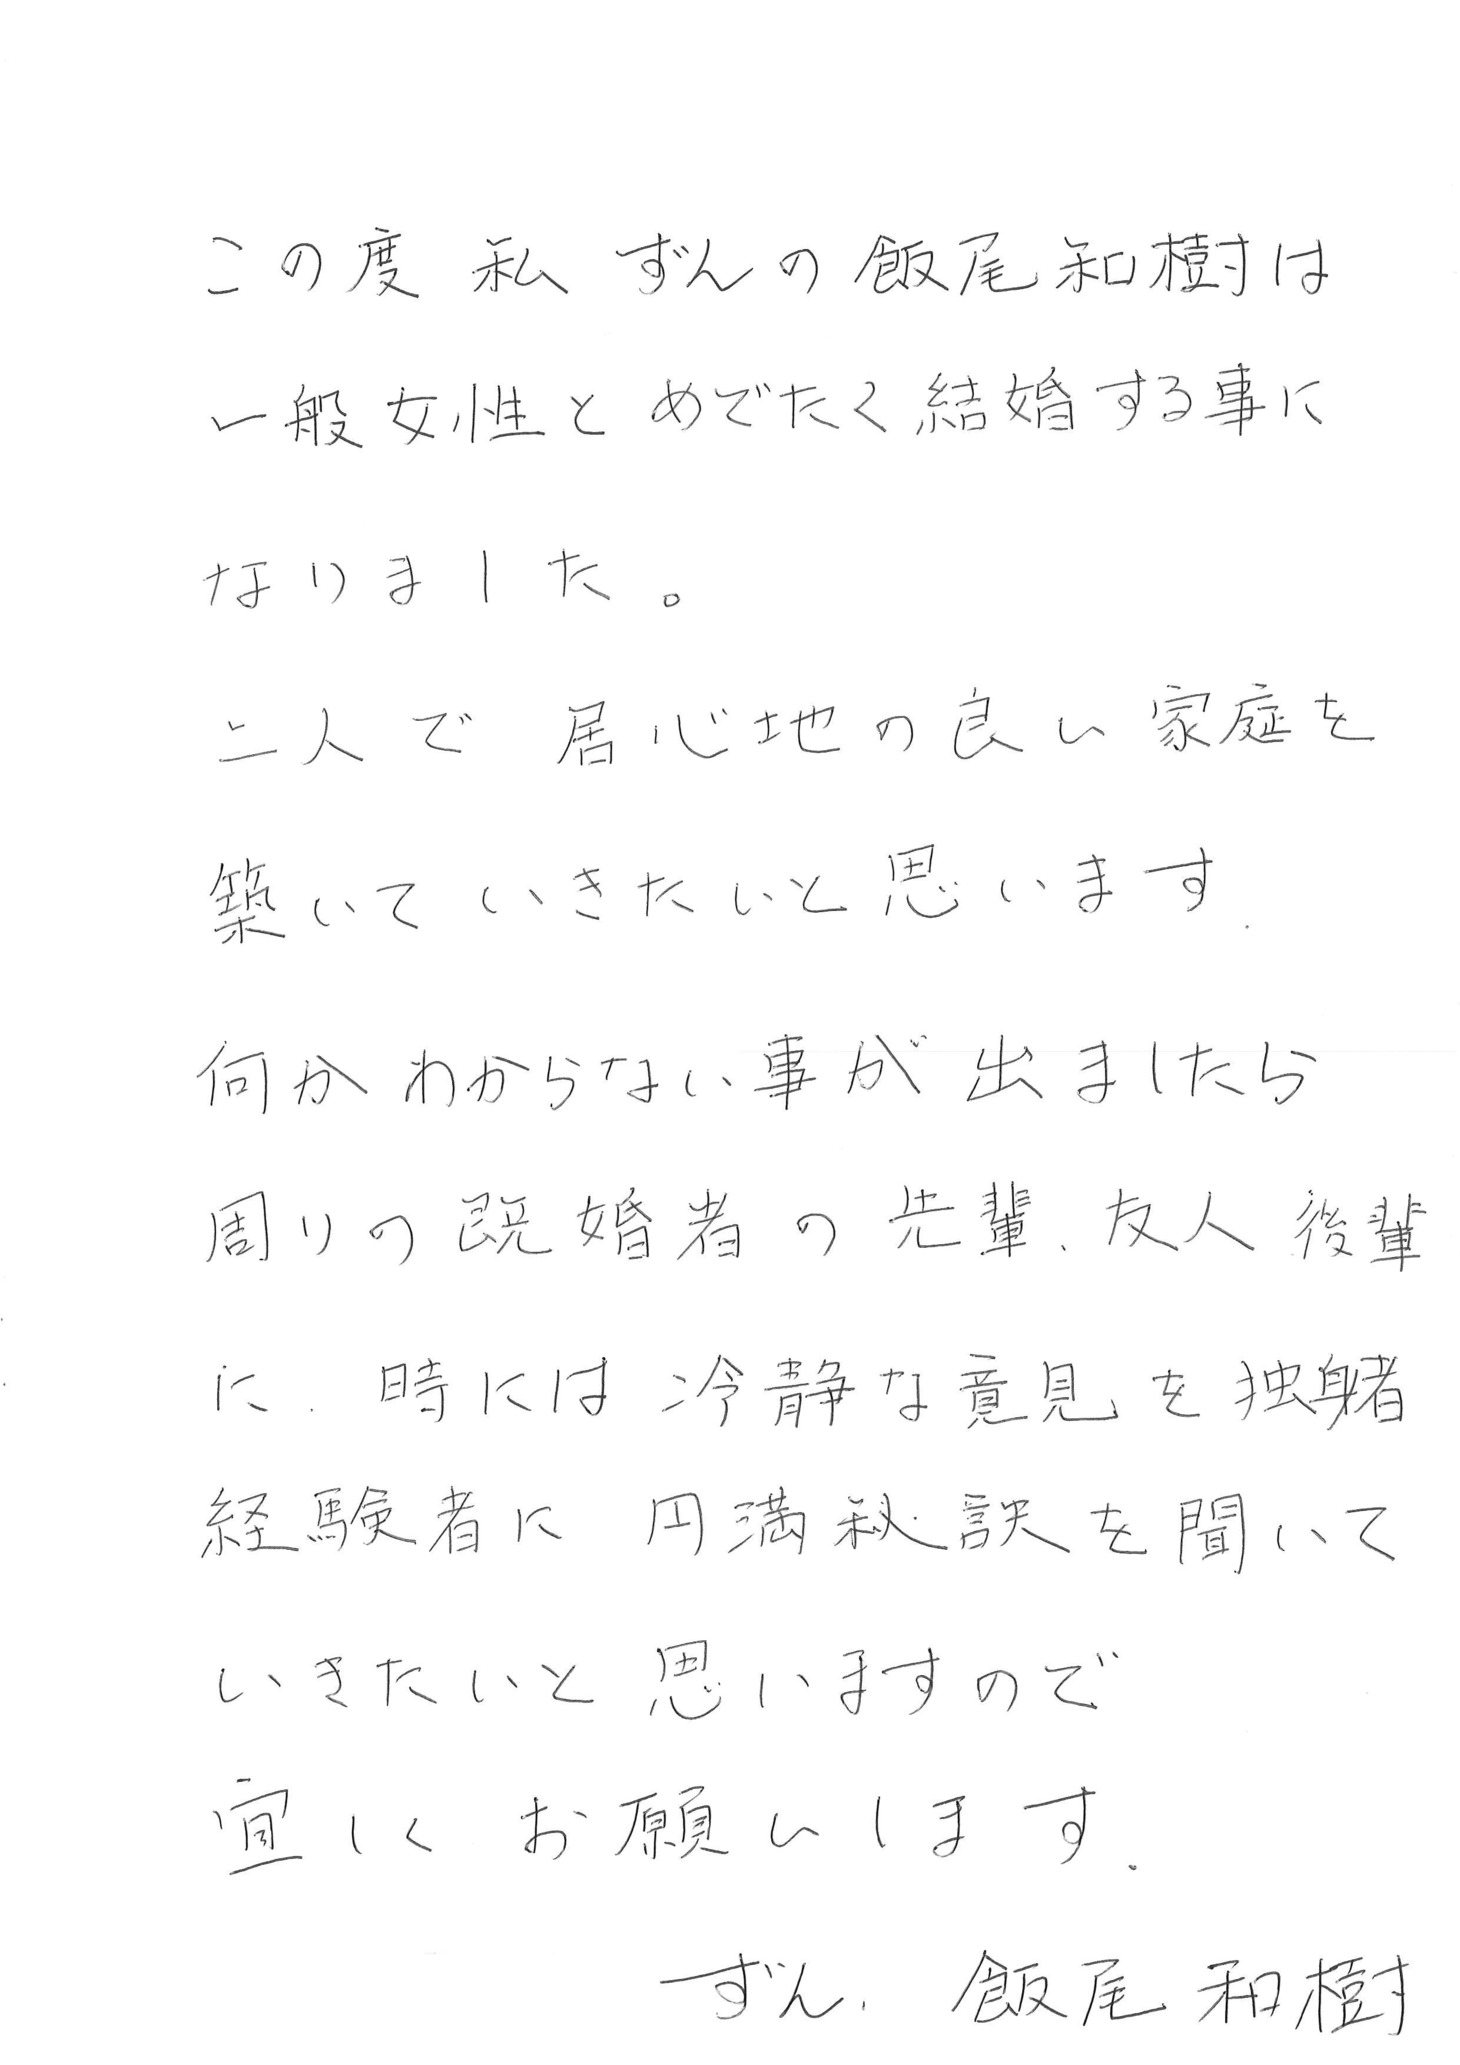 この度 私 ずんの飯尾和樹は
一般女性と めでたく結婚する事に
なりました。
二人で 居心地の良い家庭を
築いていきたいと思います.
何かわからない事が出ましたら
周りの既婚者の先輩、友人 後輩
に、時には冷静な意見を独身者
経験者に 円満秘訣を聞いて
いきたいと思いますので
宜しくお願いします.
ずん. 飯尾和樹